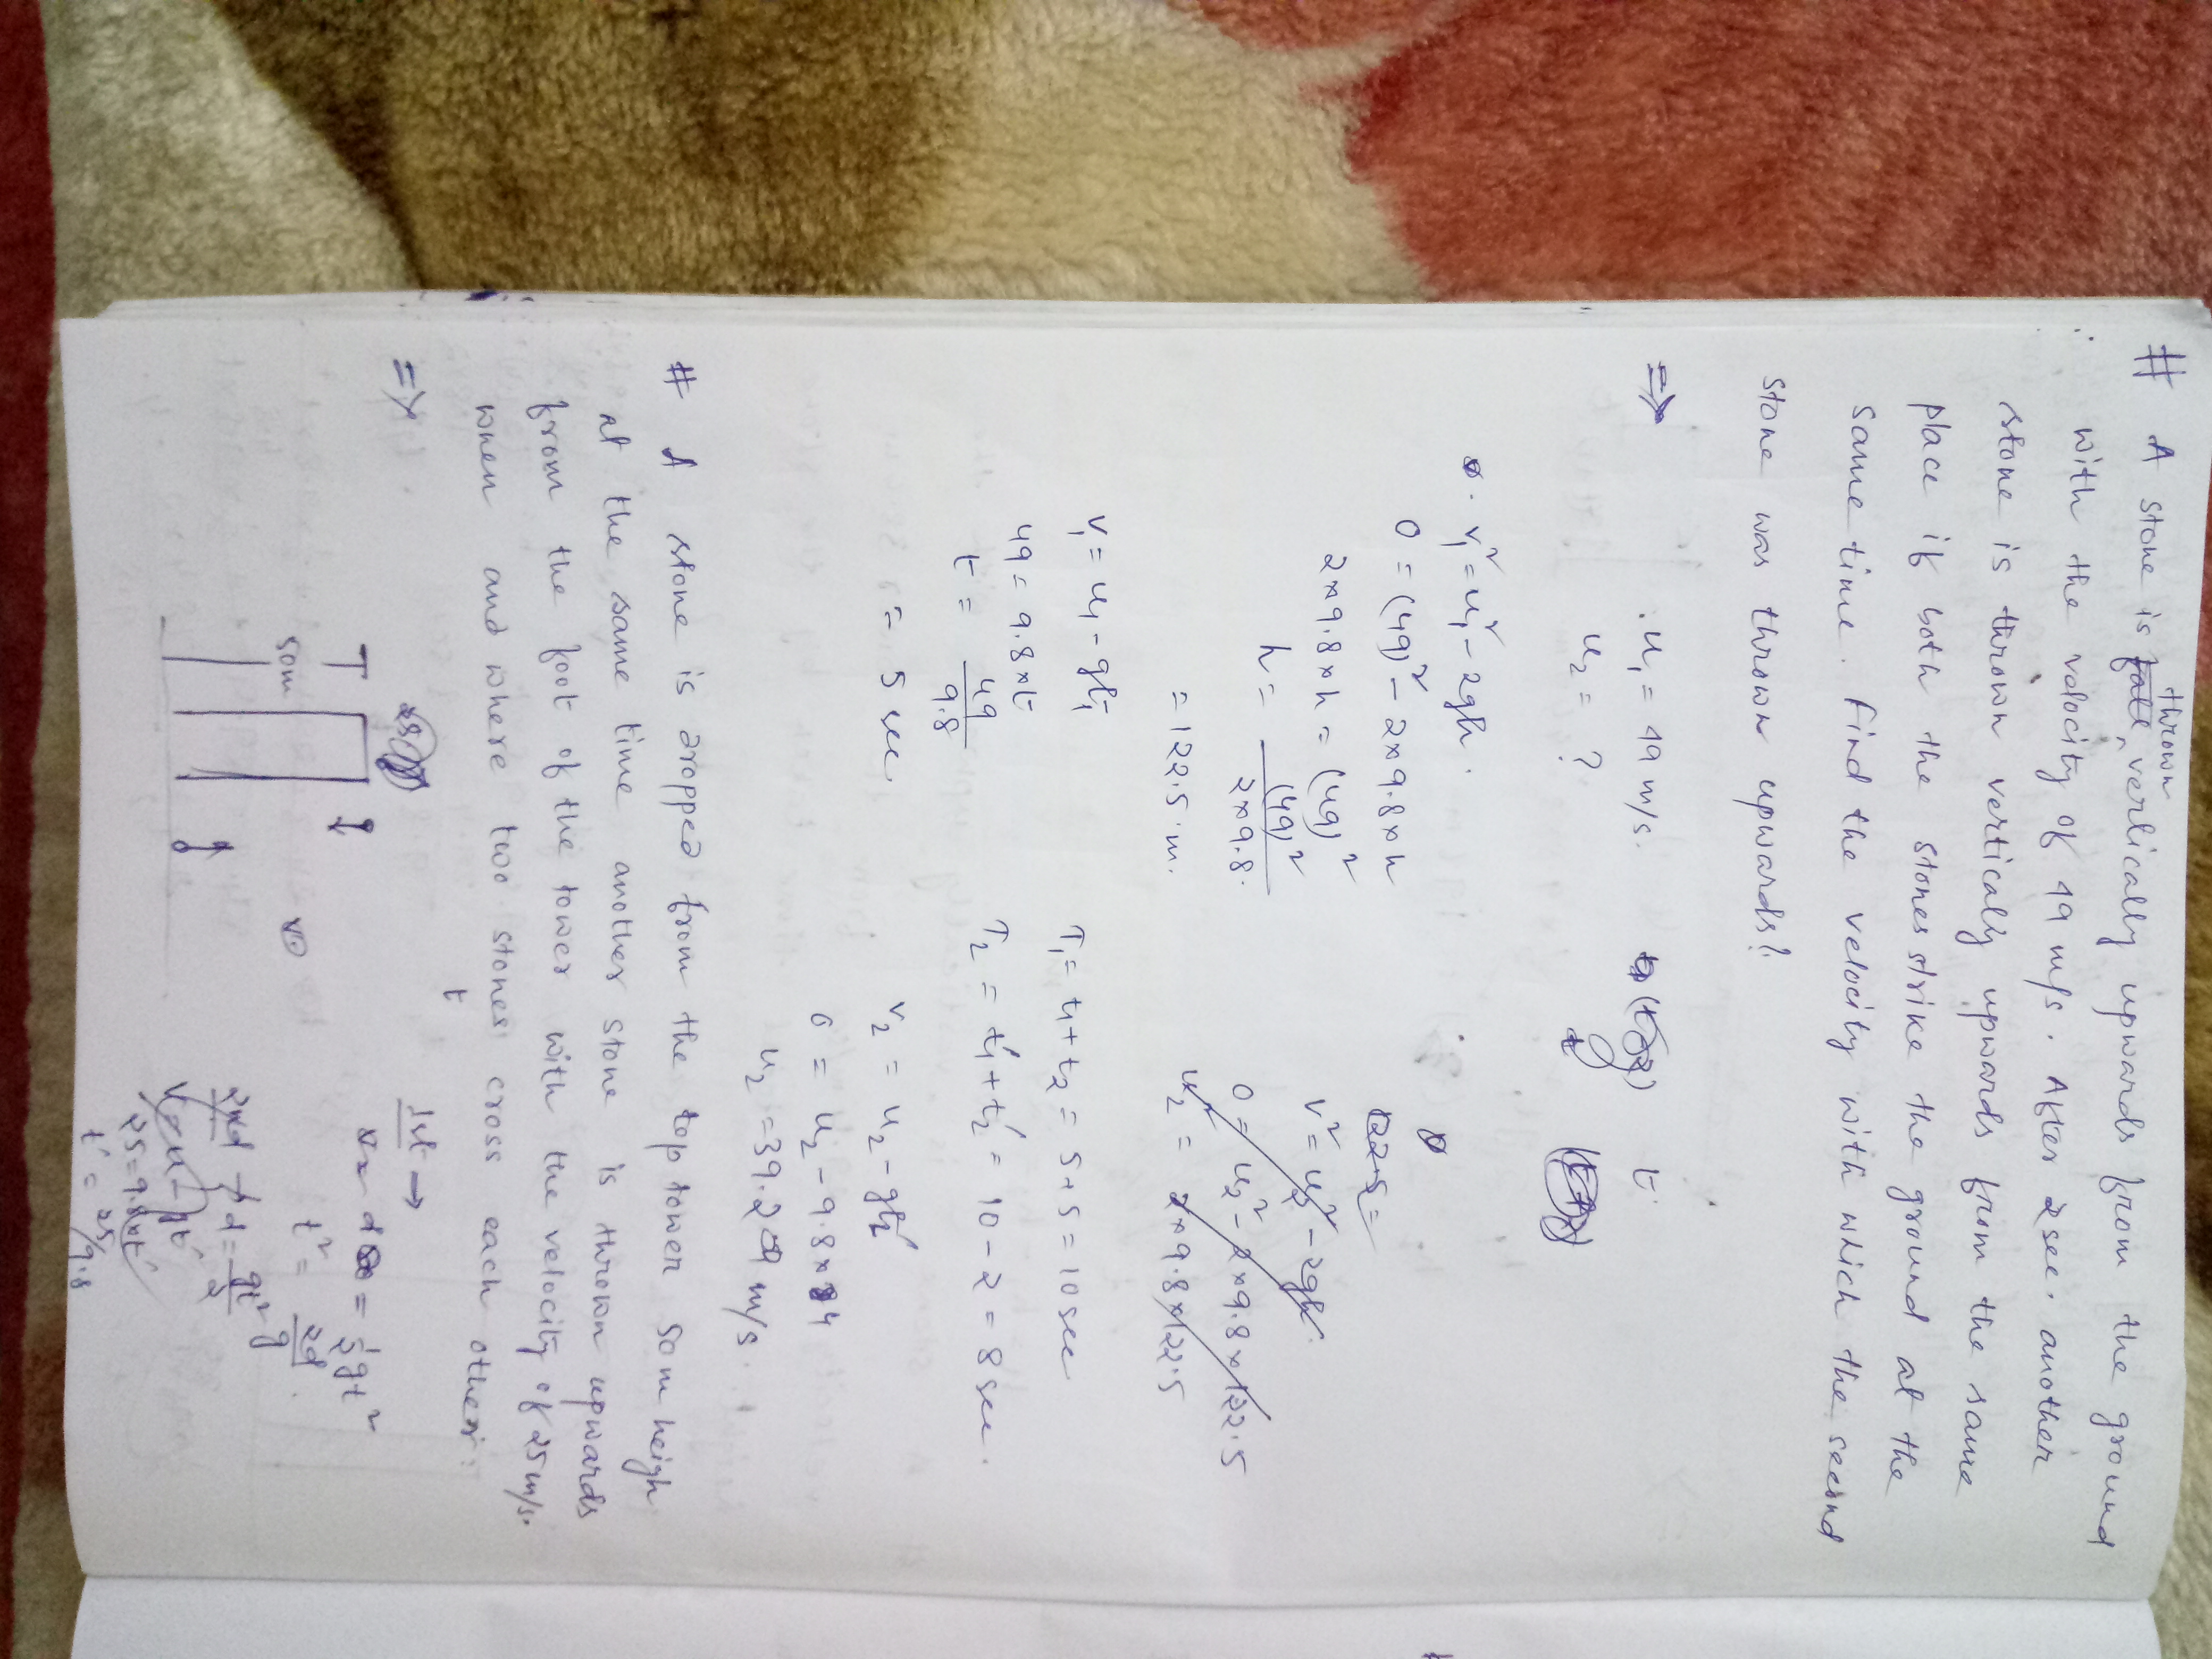 # A stone is thrown vertically upwards from the ground
with the velocity of 49 m/s. After 2 sec. another
stone is thrown vertically upwards from the same
place if both the stones strike the ground at the
same time. Find the velocity with which the second
stone was thrown upwards?
=> u₁ = 49 m/s. t
u₂ = ?
v₁² = u₁² - 2gh.
0 = (49)² - 2×9.8×h
2×9.8×h = (49)²
h = (49)²/2×9.8
= 122.5 m.
122.5 =
v² = u₂² - 2gh
0 = u₂² - 2×9.8×122.5
u₂² = 2×9.8×122.5
v₁ = u₁ - gt₁
49 = 9.8×t
t = 49/9.8
= 5 sec.
T₁ = t₁ + t₂ = 5+5 = 10 sec
T₂ = t₁' + t₂' = 10 - 2 = 8 sec.
v₂ = u₂ - gt₂'
0 = u₂ - 9.8×4
u₂ = 39.2 m/s
# A stone is dropped from the top tower 50 m heigh
at the same time another stone is thrown upwards
from the foot of the tower with the velocity of 25 m/s.
when and where two stones cross each other.
t
=>
50m
1st →
d = ½gt²
t² = 2d/g
2nd → d = gt²/2
v = u - gt'
25 = 9.8×t'
t' = 25/9.8